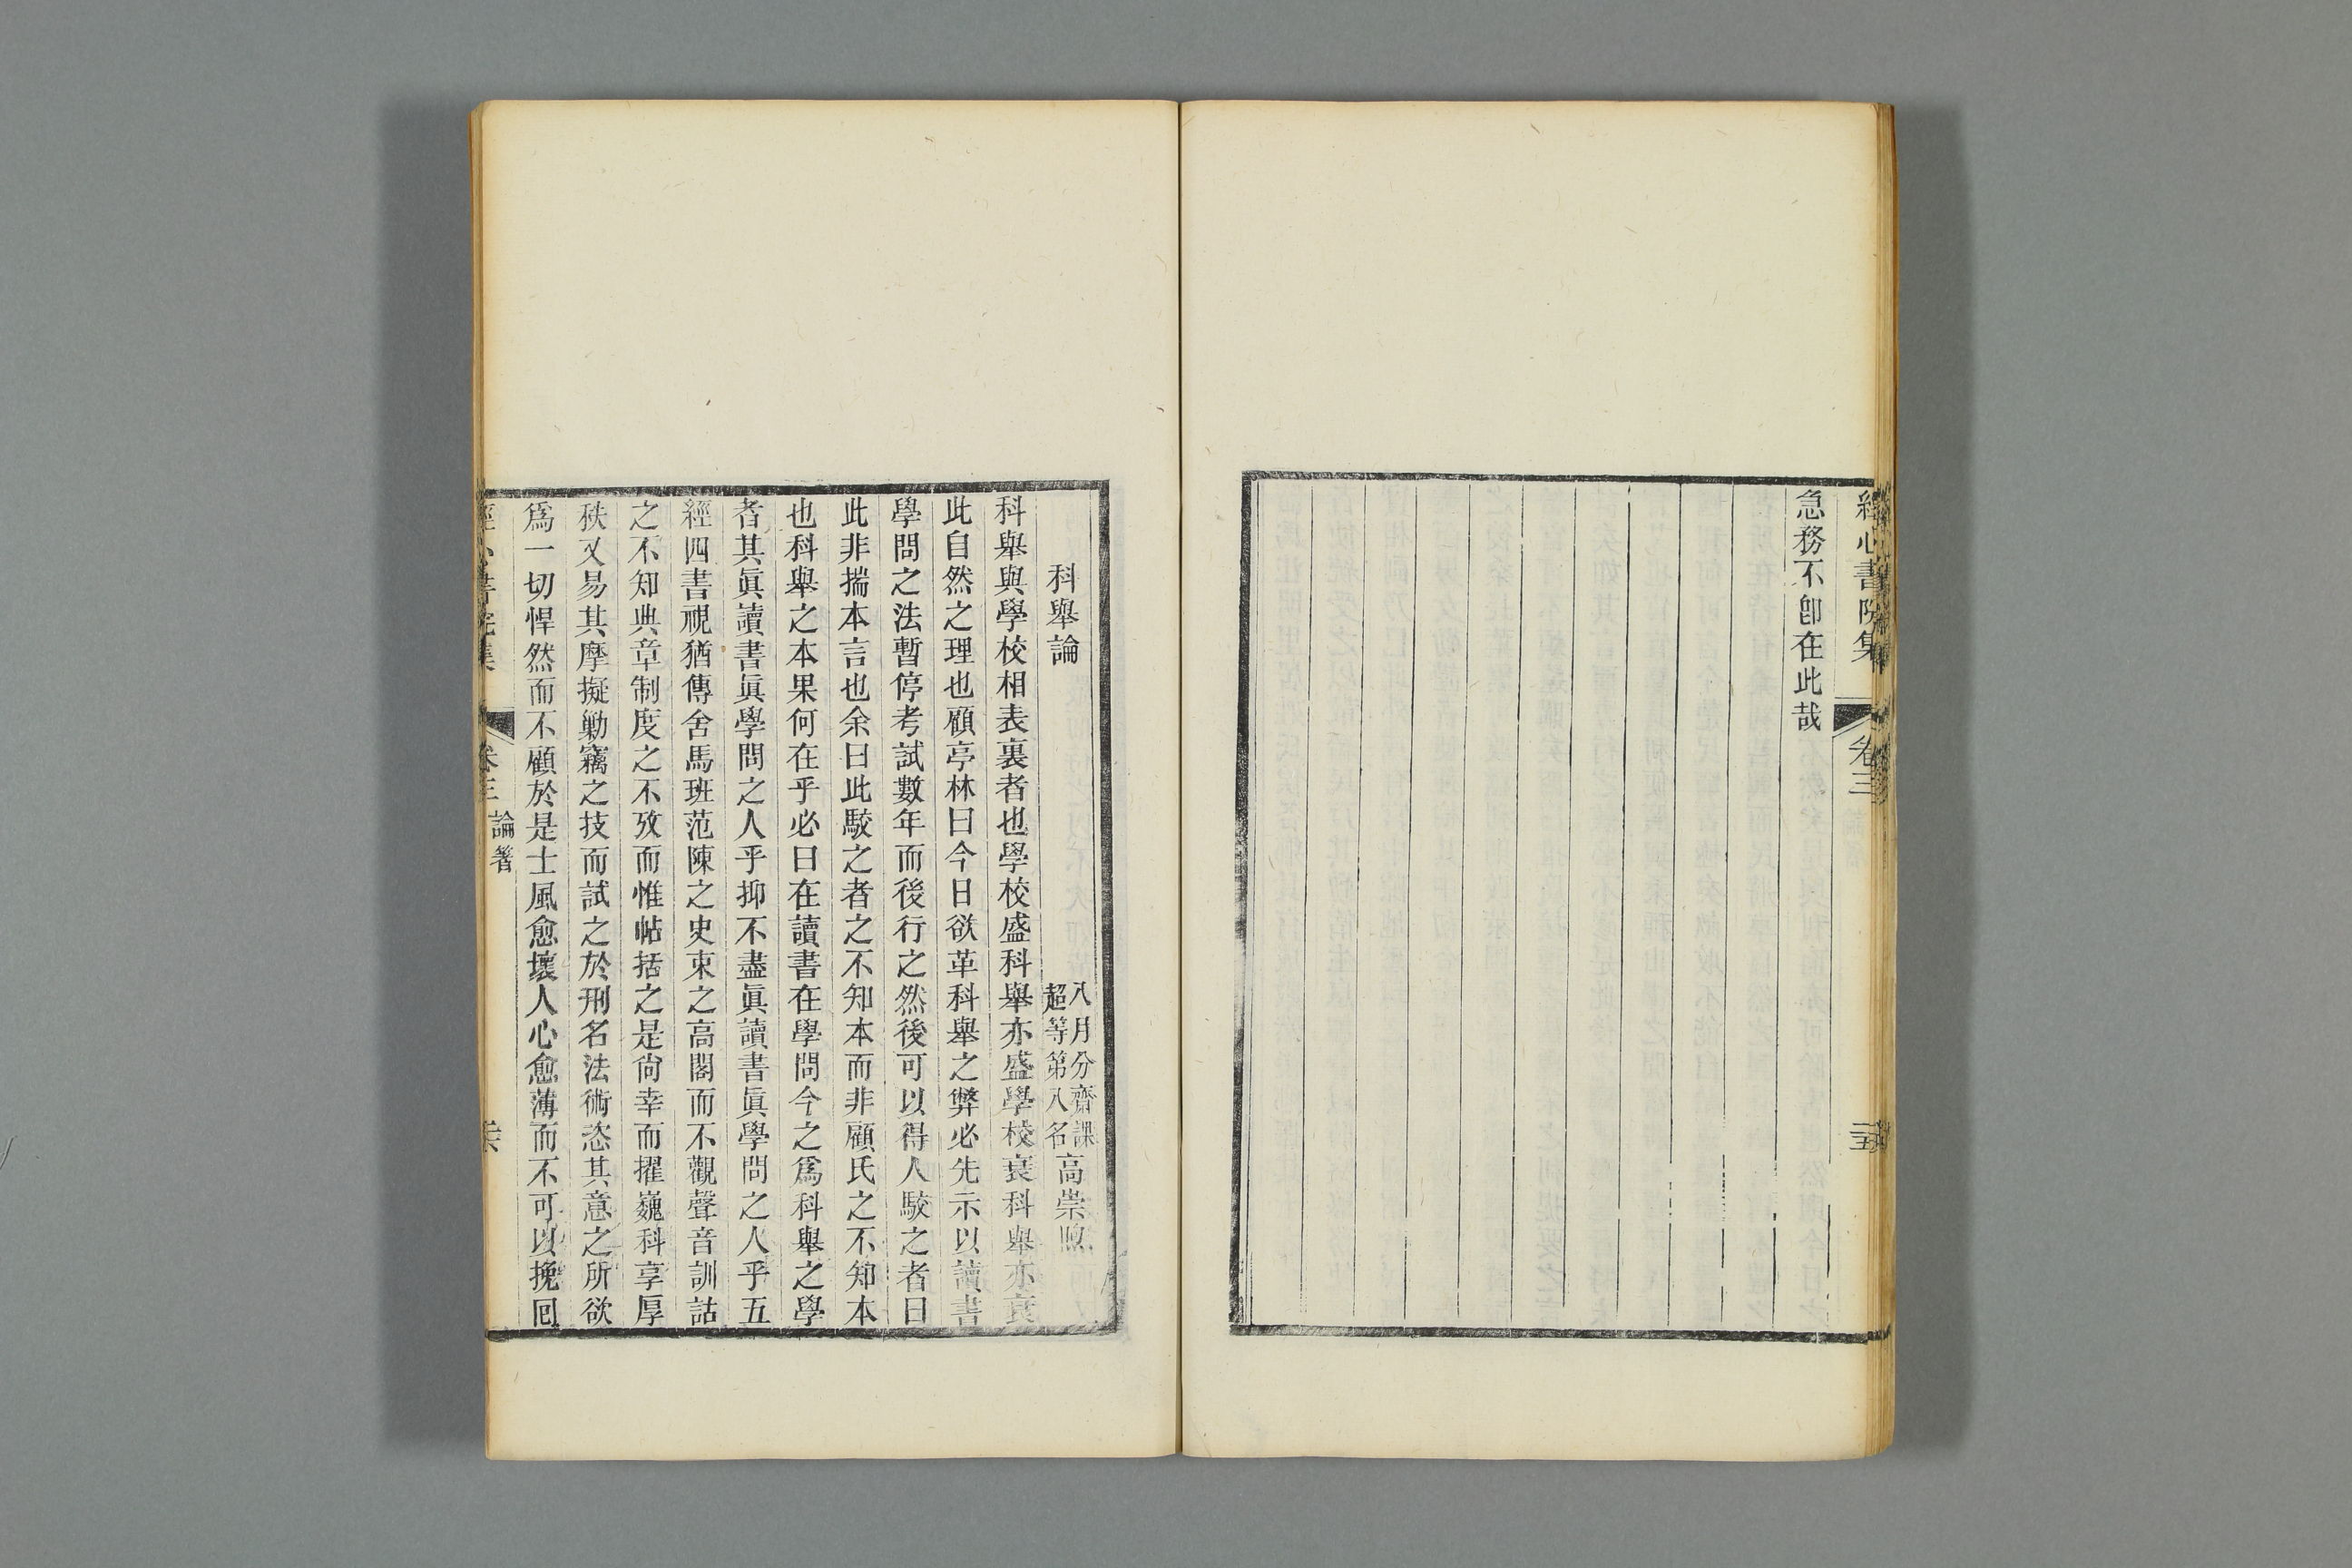 經心書院集 卷三 二五
急務不卽在此哉
科舉論
八月分齋課
超等第八名
高崇煦
科舉與學校相表裏者也學校盛科舉亦盛學校衰科舉亦衰
此自然之理也顧亭林曰今日欲革科舉之弊必先示以讀書
學問之法暫停考試數年而後行之然後可以得人駁之者曰
此非揣本言也余曰此駁之者之不知本而非顧氏之不知本
也科舉之本果何在乎必曰在讀書在學問今之爲科舉之學
者其眞讀書眞學問之人乎抑不盡眞讀書眞學問之人乎五
經四書視猶傳舍馬班范陳之史束之高閣而不觀聲音訓詁
之不知典章制度之不攷而惟帖括之是尙幸而擢巍科享厚
秩又易其摩擬勦竊之技而試之於刑名法術恣其意之所欲
爲一切悍然而不顧於是士風愈壞人心愈薄而不可以挽囘
經心書院集 卷三 論著